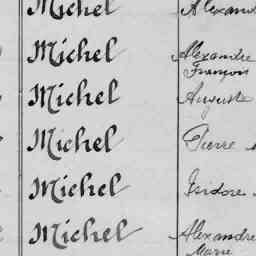 Michel Alexand
Michel Alexandre
François
Michel Auguste
Michel Pierre
Michel Isidore
Michel Alexandre
Marie